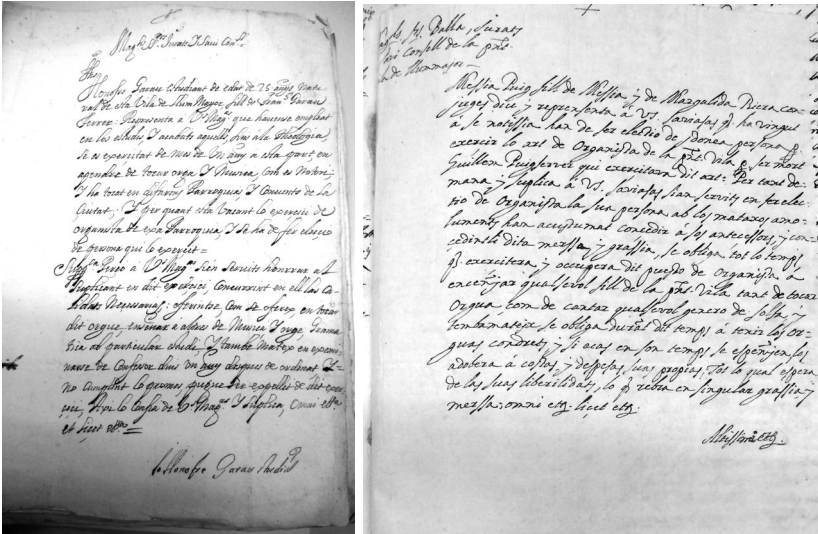 Magchs Srs Jurats Y Savi Conll
Honofre Garau estudiant de edat de 25 anys natu-
ral de esta Vila de Llum Mayor, fill de Joan Garau
Ferrer. Representa a Vs Mags que haverse empleat
en los estudis, y acudits aquells fins a la Theologia,
se es exercitat de mes de un any a esta part, en
apendre de tocar orga, y Musica, com es notori
Y ha tocat en differens Parroquias y Convents de la
Ciutat. Y per quant esta vacant lo exercici de
organista de esta Parroquia, y se ha de fer eleccio
de persona que lo exercit =
Pergo a Vs Mags sien servits honrrar al
suplicant en dit exercici, concurrint en ell las ca-
lidats necessarias: oferintse, com se ofereix en tocar
dit orgue, ensenar a altres de Musica y orge, Grama-
tica al particular estudi, y tambe Mateix en exami-
narse de Confesor dins un any despues de ordenat. Y
no cumplint lo promes puga ser expellit de dit exer-
cici, Axi lo confia de Vs Mags Y suplica, omni etta
et licet etta =
Honofre Garau
Balla, Jurats
Consell de la pnt
de Llummajor =
Messia Puig fill de Messia, y de Margalida Riera con-
juges diu, y representa à VS. saviesas q. ha vingut
à sa notissia han de fer electio de idonea persona p.
exercir lo art de Organista de la pnt. Vila p. ser mort
Guillem Puigserver qui exercitava dit art. Per tant de-
mana, y suplica à VS. saviesas sian servits en fer elec-
tio de Organista la sua persona ab los mataxos amo-
luments han acustumat concedir à sos antecessors, y con-
cedintli dita merssa, y grassia, se obliga, tot lo temps
q. exercitera, y occupera dit puesto de Organista à
encenjar qualsevol fill de la pnt. Vila tant de tocar
Orgua, com de cantar qualsevol genero de solfa, y
tembe mateix se obliga durat. dit temps à tenir los or-
guas condrets, y si acas en son temps se espenjen los
adobera à costas, y despesas suas propias. Tot lo qual espera
de las suas liberilidats, lo q. rebra en singular grassia, y
merssa. omni etz. licet etz.
Altissimus etz.